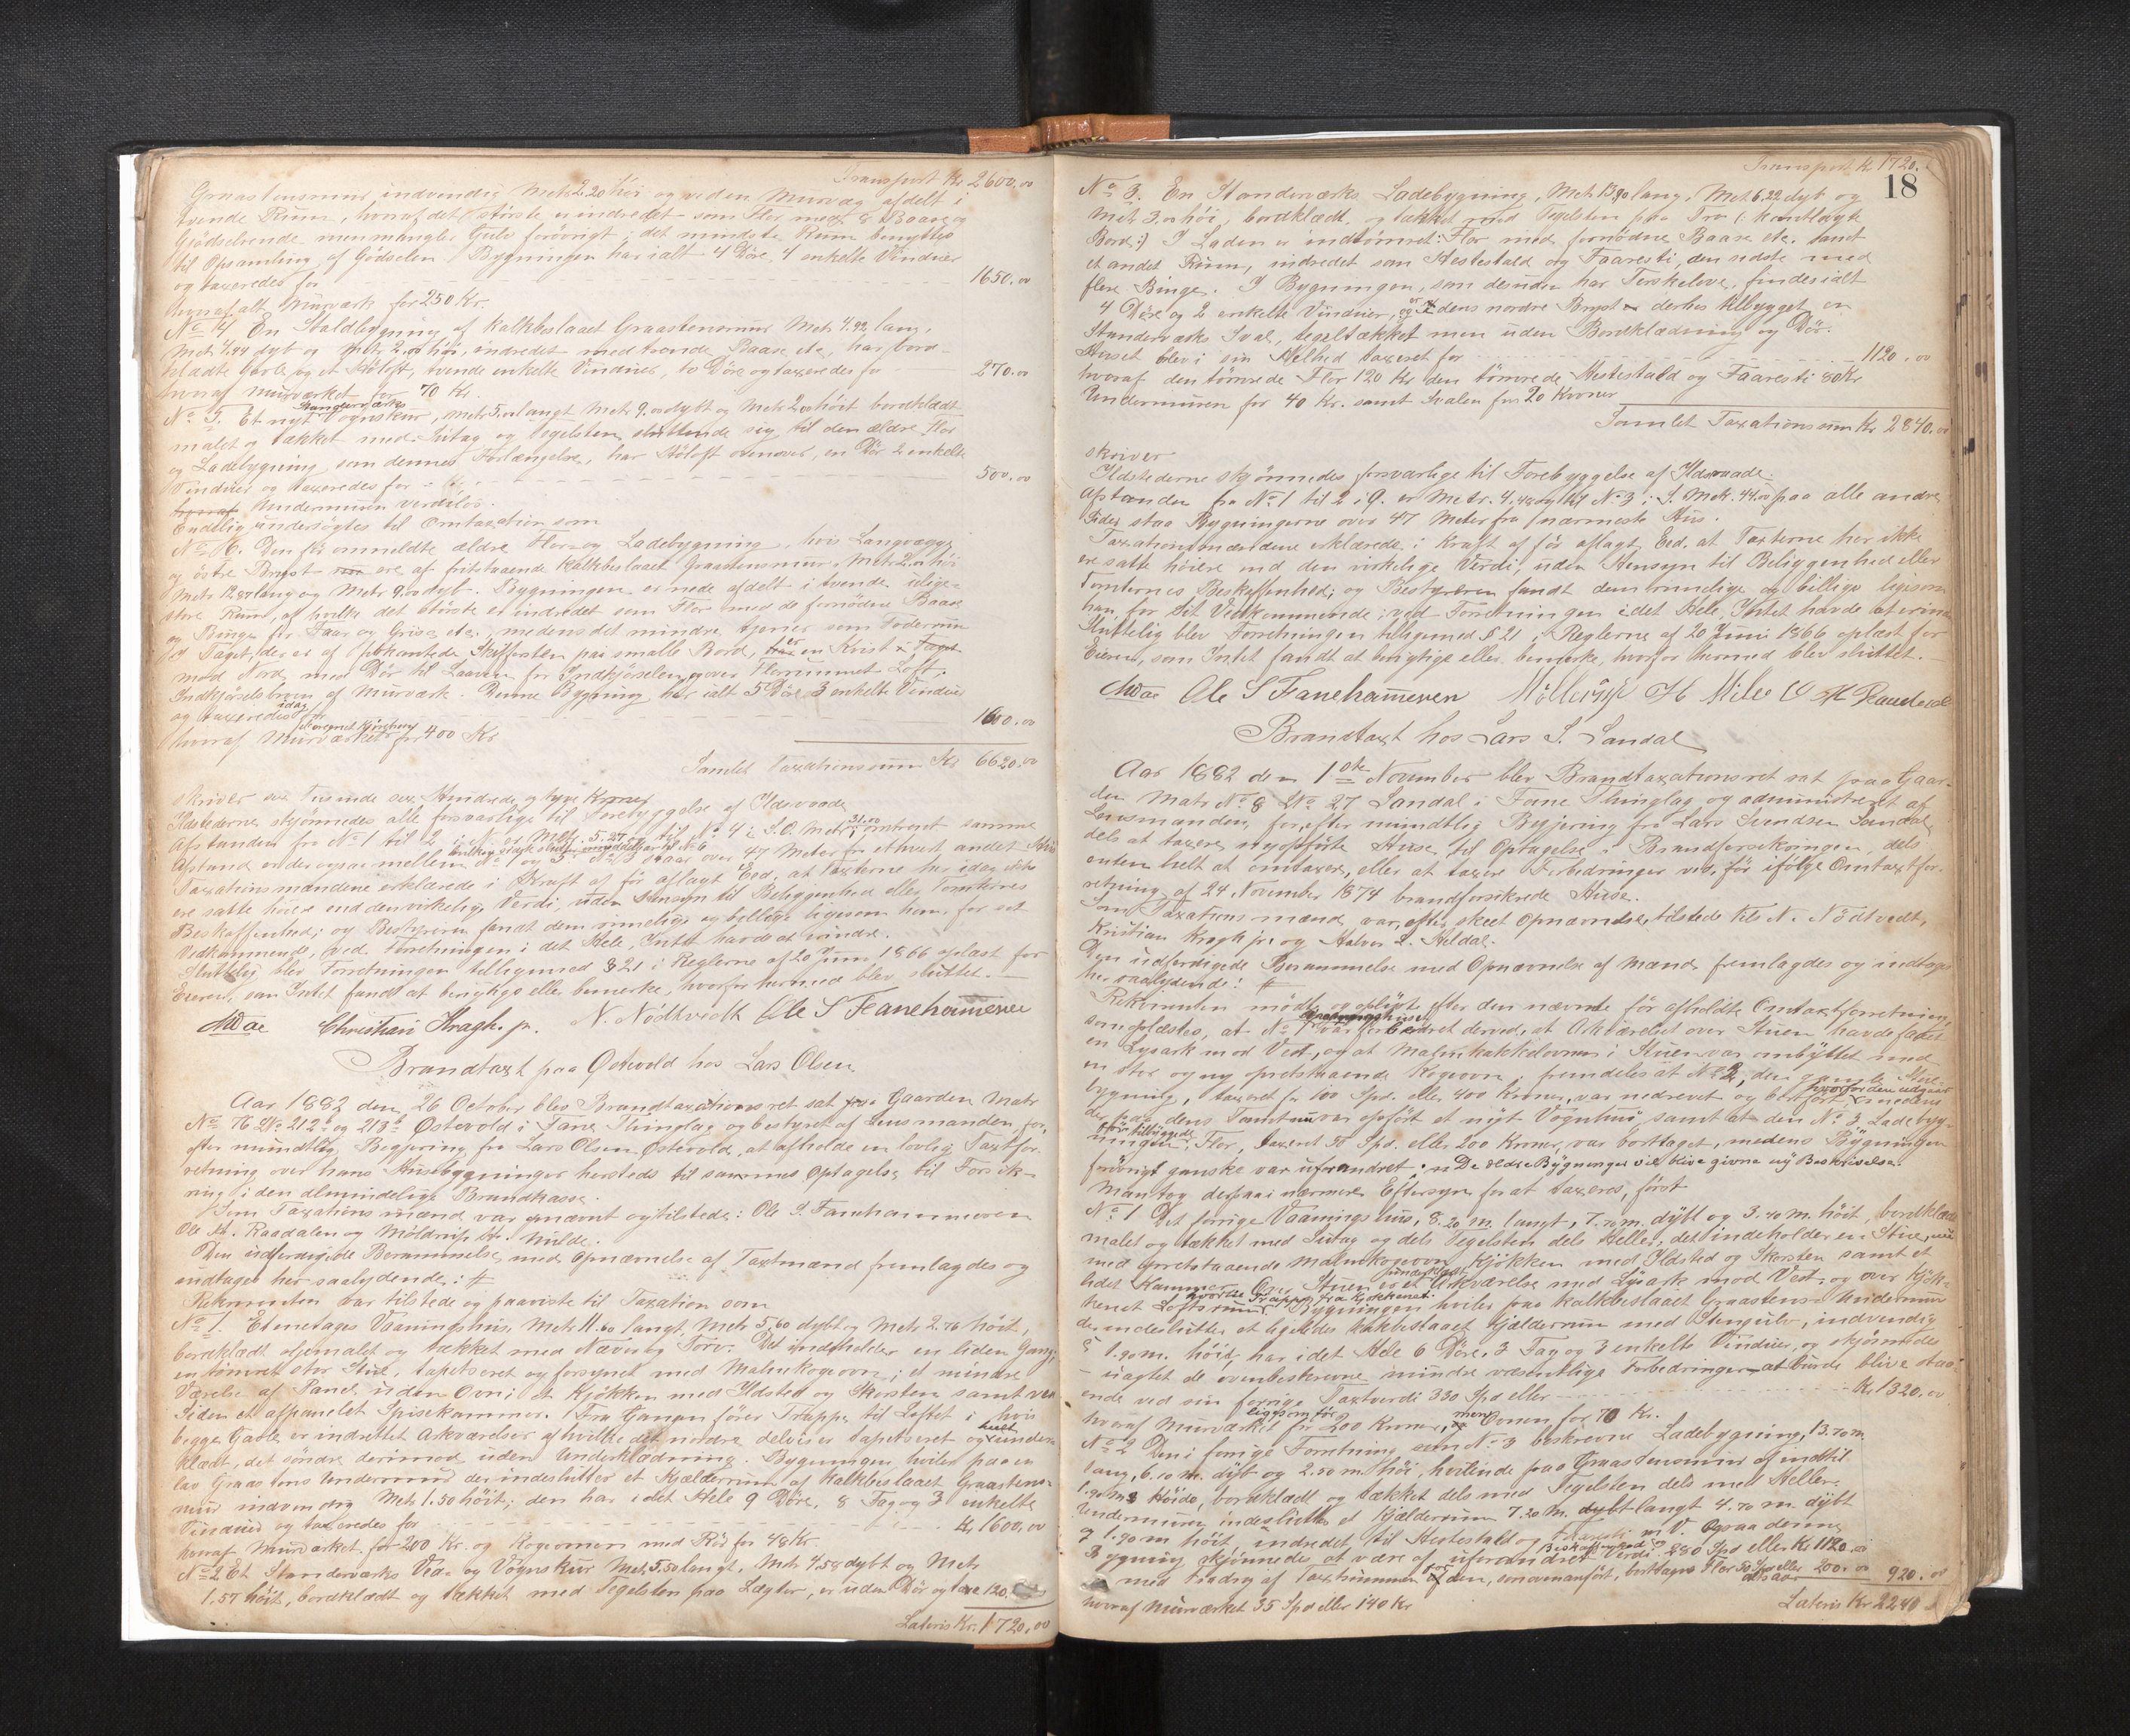 Transport Kr 2600.00
Graastensmur, indvendig Metr 2.20 höi og ved en Murvæg afdelt i
tvende Rum, hvoraf det störste er indredet som Flor med 8 Baase og
Gjödselrende men mangler Gulv forövrigt; det mindste Rum benyttes
til Opsamling af Gödselen. Bygningen har ialt 4 Döre, 4 enkelte Vinduer
og taxeredes for 1650.00
hvoraf alt Murværk for 250 Kr.
No 4 En Staldbygning af kalkbeslaaet Graastensmur Metr 4.92 lang,
Metr 4.94 dyb og Metr 2.00 höi, indredet med tvende Baase etc, har bord-
klædte Gavle og et Höloft, tvende enkelte Vinduer, to Döre og taxeredes for 270.00
hvoraf Murværket for 70 Kr.
No 5. Et nyt Standerværks Vognskur, Metr 5.00 langt Metr 9.00 dybt og Metr 2.00 höit bordklædt
malet og tækket med Sutag og Tegelsten sluttende sig til den ældre Flor
og Ladebygning som dennes Forlængelse, har Höloft ovenover, en Dör 2 enkelte
Vinduer og taxeredes for 500.00
hvoraf Undermuren værdilös.
Endelig undersögtes til Omtaxation som
No 6. Den för ommeldte ældre Flor og Ladebygning, hvis Langvægge
og östre Bryst ere af fritstaaende kalkbeslaaet Graastensmur, Metr 2.00 höi
Metr 12.87 lang og Metr 9.00 dyb. Bygningen er nede afdelt i tvende ulige-
store Rum, af hvilke det störste er indredet som Flor med de fornödne Baase
og Binge for Faar og Grise etc, medens det mindre tjener som Foderrum
I Taget, der er af Skifersten paa smalle Bord, er en Kvist
mod Nord, med Dör til Laaven for Indkjörselen, over Florrummet Loft.
Indkjörselsbroen af Murværk. Denne Bygning har ialt 5 Döre 3 enkelte Vinduer
og taxeredes idag for 1600.00
hvoraf Murværket iberegnet Kjörebroen for 400 Kr
Samlet Taxationssum Kr 6620.00
skriver sex Tusinde sex Hundrede og tyve Kroner
Ildstederne skjönnedes alle forsvarlige til Forebyggelse af Ildsvaade
Afstanden fra No 1 til 2 i N. er Metr. 5.27 og til No 4 i S.O. Metr 31.00 omtrent samme
Afstand er der ogsaa mellem No 1 og 3. No 3 staar over 47 Meter fra ethvert andet Hus
Taxationsmændene erklærede i Kraft af för aflagt Eed, at Taxterne her idag ikke
ere satte höiere end den virkelige Verdi, uden Hensyn til Beliggenhed eller Tomternes
Beskaffenhed; og Bestyreren fandt dem rimelige og billige ligesom han, for sit
Vedkommende, ved Forretningen i det Hele, Intet havde at erindre.
Sluttelig blev Forretningen tilligemed § 21 i Reglerne af 20 Juni 1866 oplæst for
Eieren, som Intet fandt at berigtige eller bemerke, hvorfor hermed blev sluttet.
Christian Kragh jr. N. Nödtvedt Ole S Fanehammeren
Brandtaxt paa Östevold hos Lars Olsen
Aar 1882 den 26 October blev Brandtaxationsret sat paa Gaarden Matr
No 76 No 212a og 213a Östevold i Fane Thinglag og bestyret af Lensmanden for,
efter mundtlig Begjering fra Lars Olsen Östevold, at afholde en lovlig Taxtfor-
retning over hans Husebygninger hersteds til sammes Optagelse til Forsik-
ring i den almindelige Brandkasse.
Som Taxationsmænd var opnævnt og tilstede: Ole S. Fanehammeren
Ole H. Raadalen og Möldrup H. Milde.
Den udferdigede Berammelse med Opnævnelse af Taxtmænd fremlagdes og
indtages her saalydende: #
Rekvirenten var tilstede og paaviste til Taxation som
No 1. Et enetages Vaaningshus, Metr 11.60 langt, Metr 5.60 dybt og Metr 2.76 höit,
bordklædt oljemalet og tækket med Næver og Torv. Det indeholder en liden Gang;
en tömret stor Stue, tapetseret og forsynet med Malmkogeovn; et mindre
Værelse af Panel uden Ovn; et Kjökken med Ildsted og Skorsten samt ved
Siden et afpanelet Spisekammer. Fra Gangen förer Trappe til Loftet i hvis
begge Gavle er indrettet Arkværelser af hvilke det nordre delvis er tapetseret og under-
klædt, det söndre derimod uden Underklædning. Bygningen hviler paa en
lav Graastens Undermur der indeslutter et Kjælderrum af kalkbeslaaet Graastens-
mur indvendig Metr 1.50 höit; den har i det Hele 9 Döre, 8 Fag og 3 enkelte
Vinduer og taxeredes for Kr 1600.00
hvoraf Murværket for 200 Kr. og Kogeovnen med Rör for 48 Kr.
No 2 Et Standerværks Ved- og Vognskur Metr 5.50 langt, Metr 4.58 dybt og Metr
1.57 höit, bordklædt og tækket med Tegelsten paa Lægter, er uden Dör og taxe 120.
Lateris Kr. 1720.00
Transport Kr 1720.
18
No 3. En Standerværks Ladebygning, Metr 13.90 lang, Metr 6.22 dyb og
Metr 3.00 höi, bordklædt og tækket med Tegelsten paa Tro (: kantlagte
Bord:) I Laden er indtömret: Flor med fornödne Baase etc. samt
et andet Rum, indredet som Hestestald og Faaresti, den sidste med
flere Binge. I Bygningen, som desuden har Terskelove, findes ialt
4 Döre og 2 enkelte Vinduer, og ved dens nordre Bryst er derhos tilbygget en
Standerværks Sval, tegeltækket men uden Bordklædning og Dör.
Huset blev i sin Helhed taxeret for 1120.00
hvoraf den tömrede Flor 120 Kr den tömrede Hestestald og Faaresti 80 Kr
Undermuren for 40 Kr. samt Svalen for 20 Kroner
Samlet Taxationssum Kr 2840.00
skriver
Ildstederne skjönnedes forsvarlige til Forebyggelse af Ildsvaade.
Afstanden fra No 1 til 2 i Ö. er Metr. 4.42 og til No 3 i S. Metr. 44.00 paa alle andre
Sider staa Bygningerne over 47 Meter fra nærmeste Hus.
Taxationsmændene erklærede i Kraft af för aflagt Eed, at Taxterne her ikke
ere satte höiere end den virkelige Verdi, uden Hensyn til Beliggenhed eller
Tomternes Beskaffenhed; og Bestyreren fandt dem rimelige og billige ligesom
han, for sit Vedkommende; ved Forretningen i det Hele, Intet havde at erindre
Sluttelig blev Forretningen tilligemed § 21 i Reglerne af 20 Juni 1866 oplæst for
Eieren, som Intet fandt at berigtige eller bemerke, hvorfor hermed blev sluttet.
Ole S Fanehammeren Möldrup H Milde O H Raadal
Brandtaxt hos Lars S. Sandal
Aar 1882 den 1ste November blev Brandtaxationsret sat paa Gaar-
den Matr No 8 No 27 Sandal i Fane Thinglag og administreret af
Lensmanden, for, efter mundtlig Begjering fra Lars Svendsen Sandal,
dels at taxere nyopförte Huse til Optagelse i Brandforsikringen, dels
enten helt at omtaxere, eller at taxere Forbedringer ved, för ifölge Omtaxtfor-
retning af 24 November 1874 brandforsikrede Huse.
Som Taxationsmænd var, efter skeet Opnævnelse, tilstede Nils N. Nödtvedt,
Kristian Kragh jr. og Halvor L. Heldal.
Den udferdigede Berammelse med Opnævnelse af Mænd fremlagdes og indtages
her saalydende: #
Rekvirenten mödte og oplyste efter den nævnte för afholdte Omtaxtforretning,
som oplæstes, at No 1 Vaaningshuset var forbedret derved, at Arkværelset over Stuen havde faaet
en Lysark mod Vest, og at Malmkakkelovnen i Stuen var ombyttet med
en stor og ny opretstaaende Kogeovn; fremdeles at No 2, den gamle Stue-
bygning, taxeret for 100 Spd. eller 400 Kroner, var nedrevet og bortfört, hvorfor den udgaar medens
der paa dens Tomt nu var opfört et nyt Vognhus, samt at den No 3 Ladebyg-
ningen för tilliggende Flor, taxeret 50 Spd. eller 200 Kroner, var borttaget, medens Bygningen
forövrigt ganske var uforandret. De ældre Bygninger vil blive givne ny Beskrivelse.
Man tog derpaa i nærmere Eftersyn for at taxeres, först
No 1 Det forrige Vaaningshus, 8.20 m. langt, 7.70 m. dybt og 3.40 m. höit, bordklædt
malet og tækket med Sutag og dels Tegelsten dels Heller; det indeholder en Stue,
med opretstaaende Malmkogeovn Kjökken med Ildsted og Skorsten samt et
lidet Kammer. Over Stuen er et Arkværelse med Lysark mod Vest, og over Kjök-
kenet Loftsrum. Bygningen hviler paa kalkbeslaaet Graastens Undermur
der indeslutter et ligeledes kalkbeslaaet Kjælderrum med Stengulv, indvendig
1.90 m. höit, har i det Hele 6 Döre, 3 Fag og 3 enkelte Vinduer, og skjönnedes
- uagtet de ovenbeskrevne mindre væsentlige Forbedringer - at burde blive staa-
ende ved sin forrige Taxtverdi 330 Spd eller Kr. 1320.00
hvoraf Murværket ligesom för for 200 Kroner, men Ovnen for 70 Kr.
No 2 Den i forrige Forretning som No 3 beskrevne Ladebygning, 13.70 m.
lang, 6.10 m. dyb og 2.50 m. höi, hvilende paa Graastensmur af indtil
1.90 ms Höide, bordklædt og tækket dels med Tegelsten dels med Heller.
Undermuren indeslutter et Kjælderrum 7.20 m. langt 4.70 m. dybt
og 1.90 m. höit, indredet til Hestestald og Faaresti i V. Ogsaa denne
Bygning skjönnedes at være af uforandret Beskaffenhed og Verdi 280 Spd eller Kr. 1120.00
med Fradrag af Taxtsummen for den, som ovenanfört, borttagne Flor 50 Spd eller 200.00 altsaa 920.00
hvoraf Murværket 35 Spd eller 140 Kr
Lateris Kr 2240